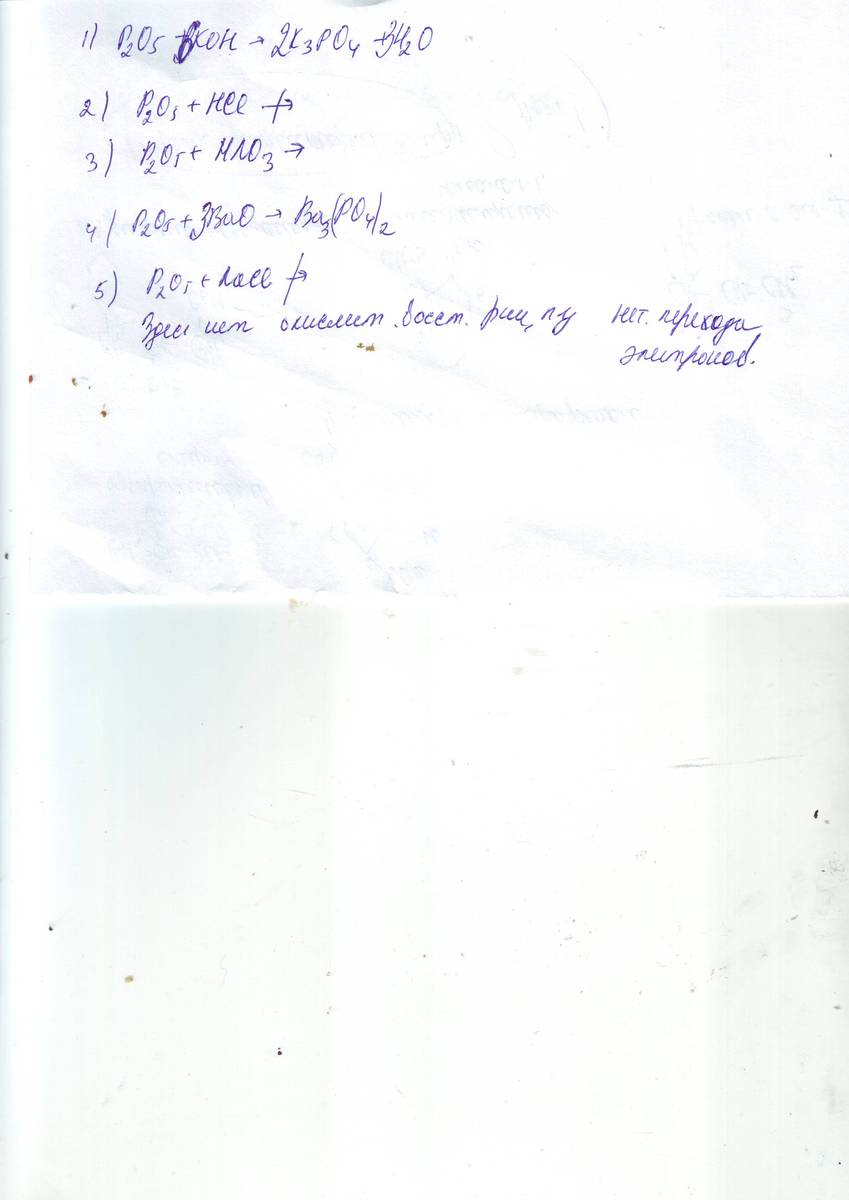 1) P₂O₅ + 6KOH → 2K₃PO₄ + 3H₂O
2) P₂O₅ + HCl ↛
3) P₂O₅ + HNO₃ →
4) P₂O₅ + 3BaO → Ba₃(PO₄)₂
5) P₂O₅ + NaCl ↛
Здесь нет окислит. восст. нет. перехода
электронов.